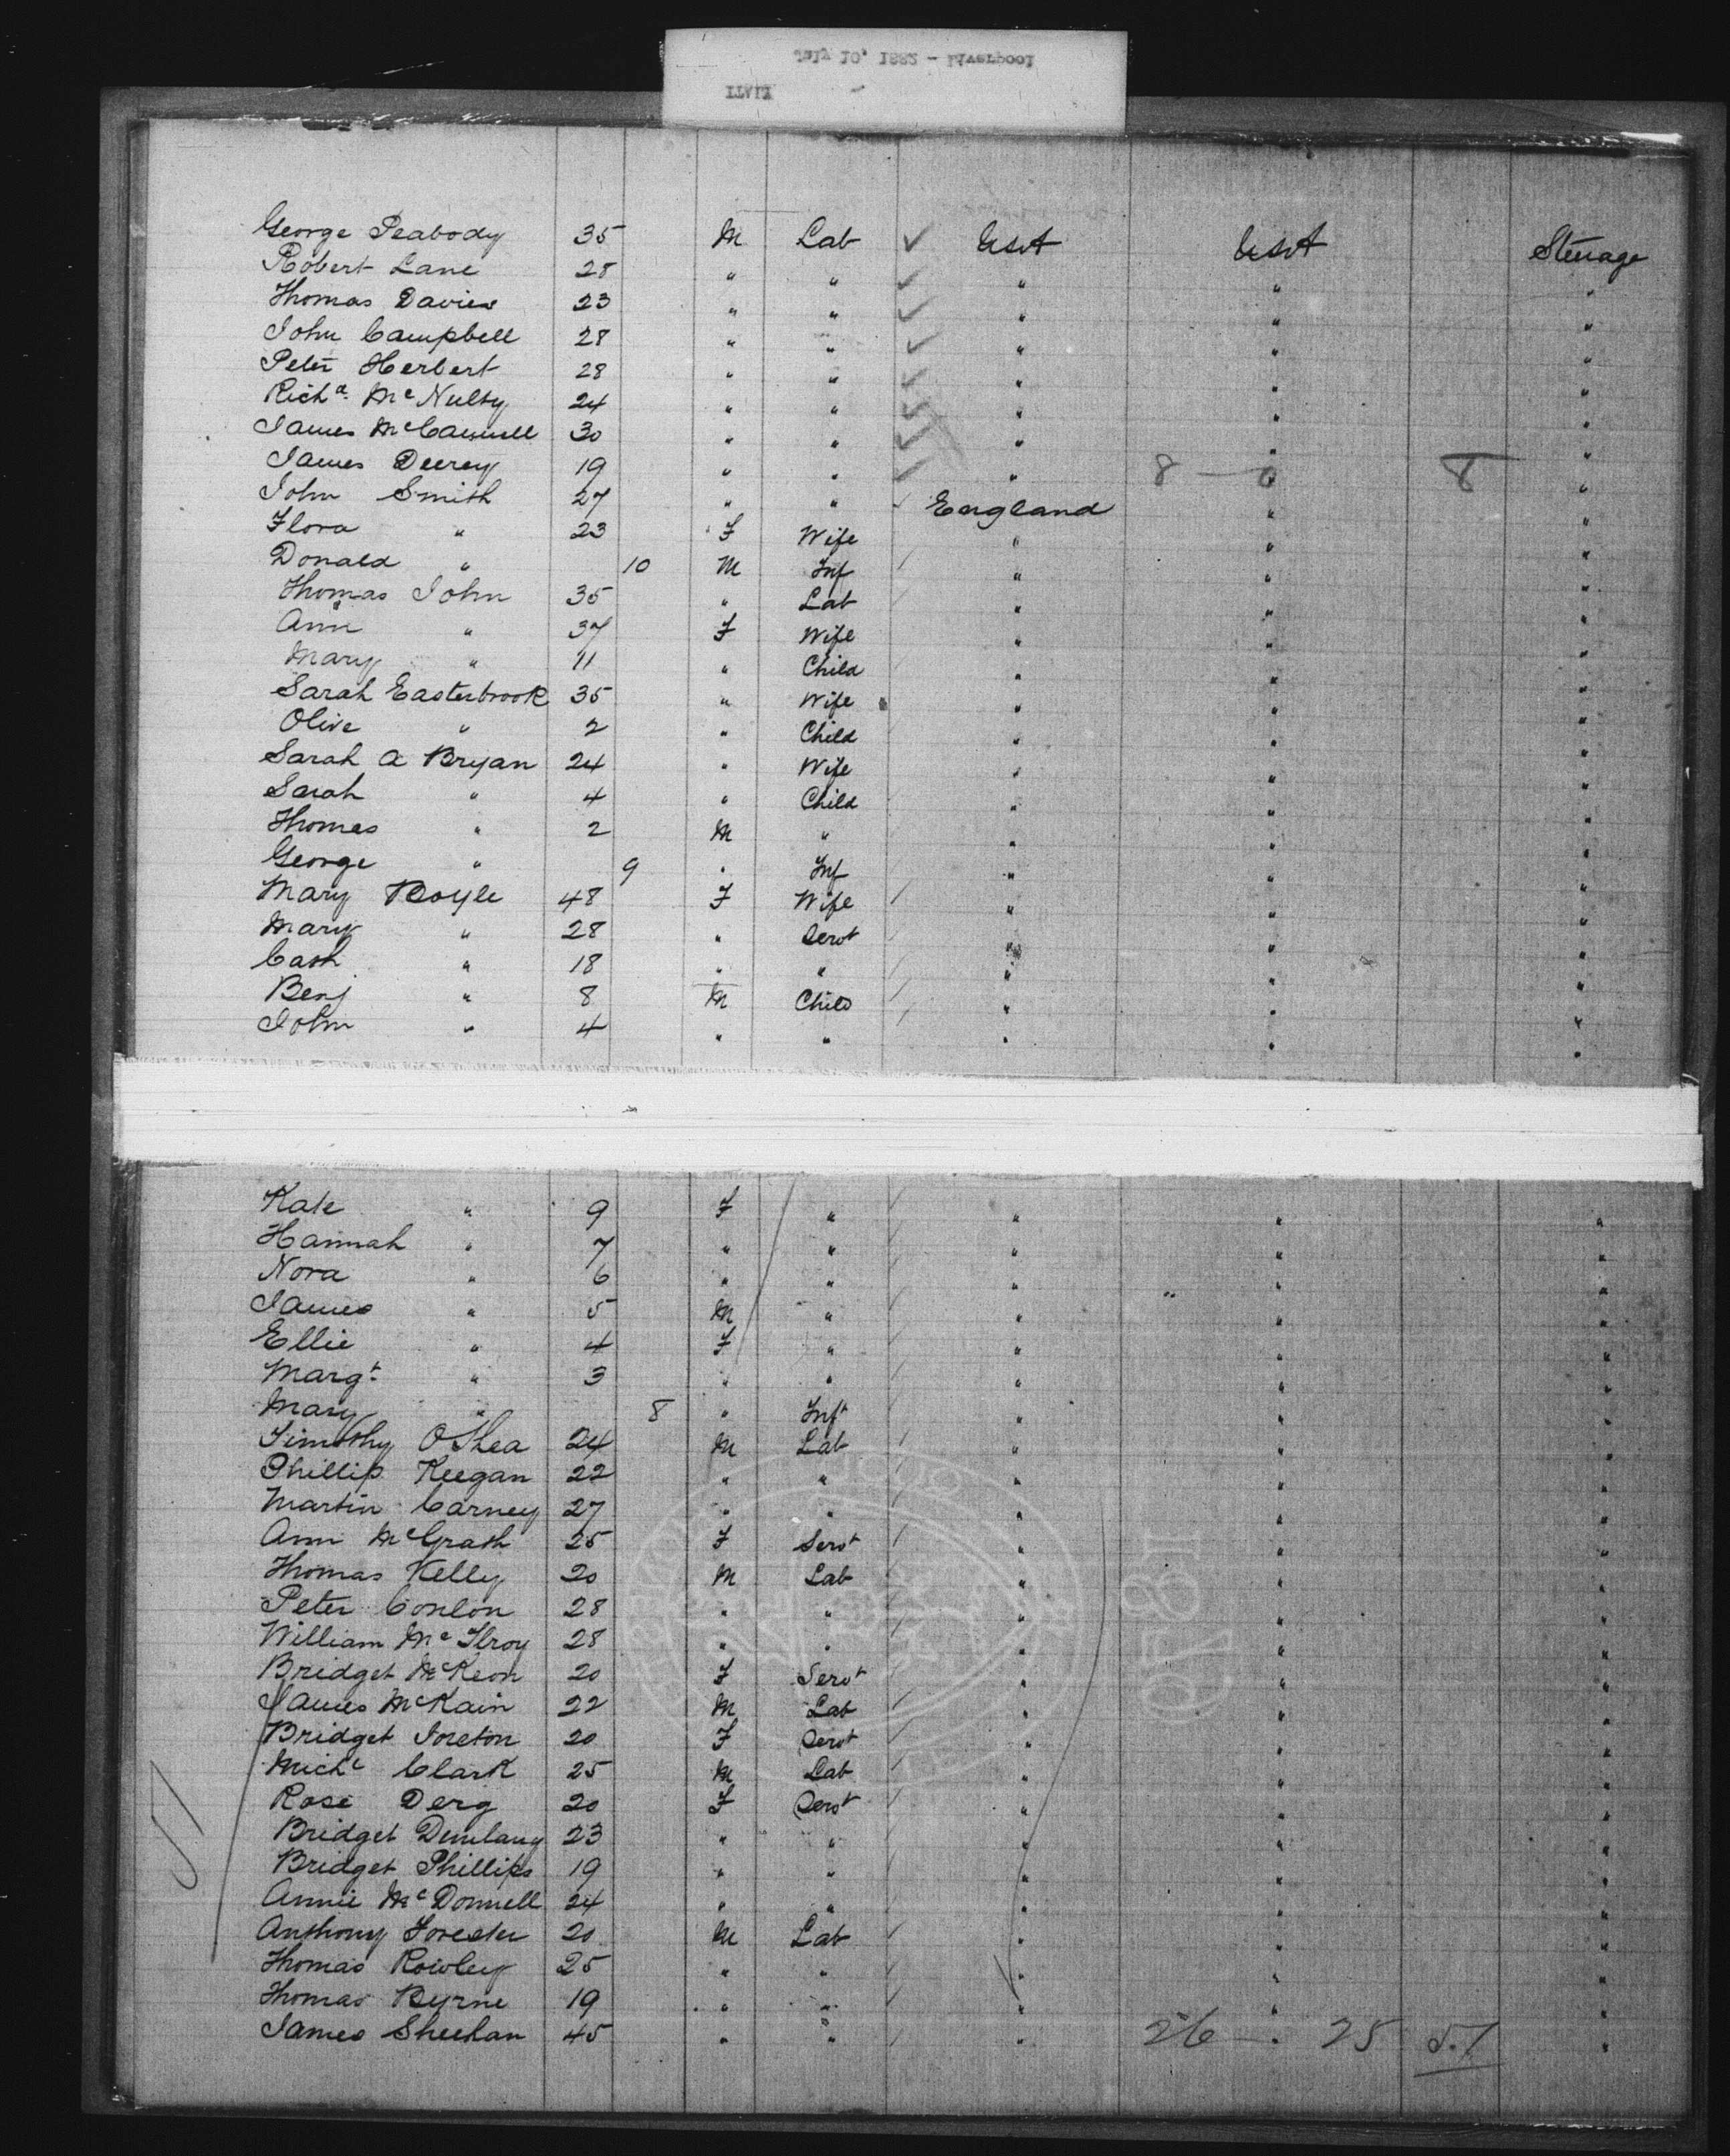 July 10, 1882 - Liverpool
George Peabody 35 M Lab ✓ USA USA Steerage
Robert Lane 28 " " ✓ " " "
Thomas Davies 23 " " ✓ " " "
John Campbell 28 " " ✓ " " "
Peter Herbert 28 " " ✓ " " "
Richd. McNulty 24 " " ✓ " " "
James 30 " " ✓ " " "
James Deerey 19 " " ✓ " 8 - 0 " 8 "
John Smith 27 " " ✓ England " "
Flora " 23 F Wife " " "
Donald " 10 M Inf " " "
Thomas John 35 " Lab " " "
Ann " 37 F Wife " " "
Mary " 11 " Child " " "
Sarah Easterbrook 35 " Wife " " "
Olive " 2 " Child " " "
Sarah A Bryan 24 " Wife " " "
Sarah " 4 " Child " " "
Thomas " 2 M " " " "
George " 9 " Inf " " "
Mary Boyle 48 F Wife " " "
Mary " 28 " Servt " " "
Cath " 18 " " " " "
Benj " 8 M Child " " "
John " 4 " " " " "
Kate " 9 F " " " "
Hannah " 7 " " " " "
Nora " 6 " " " " "
James " 5 M " " " "
Ellie " 4 F " " " "
Margt. " 3 " " " " "
Mary " 8 " Inft " " "
Timothy O'Shea 24 M Lab " " "
Phillip Keegan 22 " " " " "
Martin Carney 27 " " " " "
Ann McGrath 25 F Servt " " "
Thomas Kelly 20 M Lab " " "
Peter Conlon 28 " " " " "
William McIlroy 28 " " " " "
Bridget McKeon 20 F Servt " " "
James McKain 22 M Lab " " "
Bridget 20 F Servt " " "
Michl Clark 25 M Lab " " "
Rose Derg 20 F Servt " " "
Bridget 23 " " " " "
Bridget Phillips 19 " " " " "
Annie McDonnell 24 " " " " "
Anthony 20 M Lab " " "
Thomas Rowley 25 " " " " "
Thomas Byrne 19 " " " " "
James Sheehan 45 " " " 26 - " 25 51 "
51